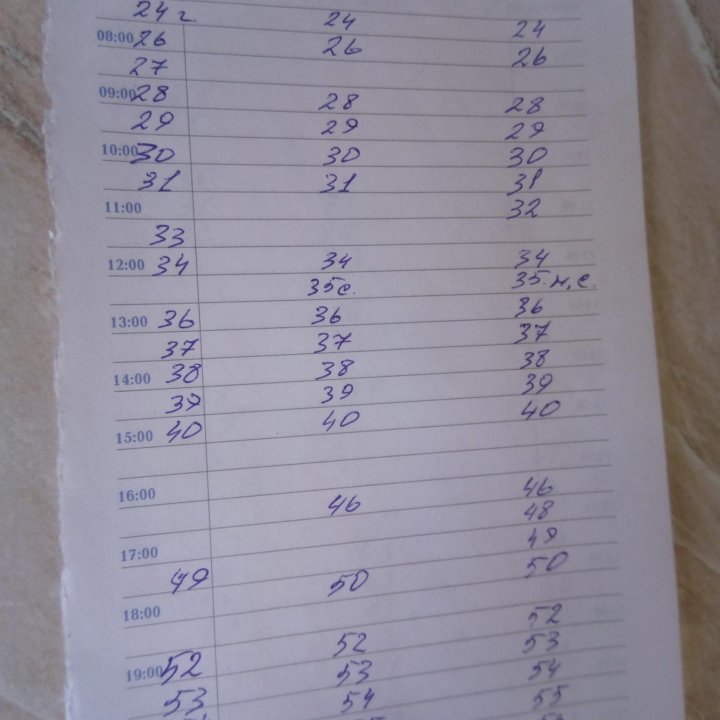 24 г. 24 24
08:00 26 26 26
27
09:00 28 28 28
29 29 29
10:00 30 30 30
31 31 31
11:00 32
33
12:00 34 34 34
35с. 35 м,с.
13:00 36 36 36
37 37 37
14:00 38 38 38
39 39 39
15:00 40 40 40
16:00 46 46
48
17:00 49
49 50 50
18:00 52
52 53
19:00 52 53 54
53 54 55